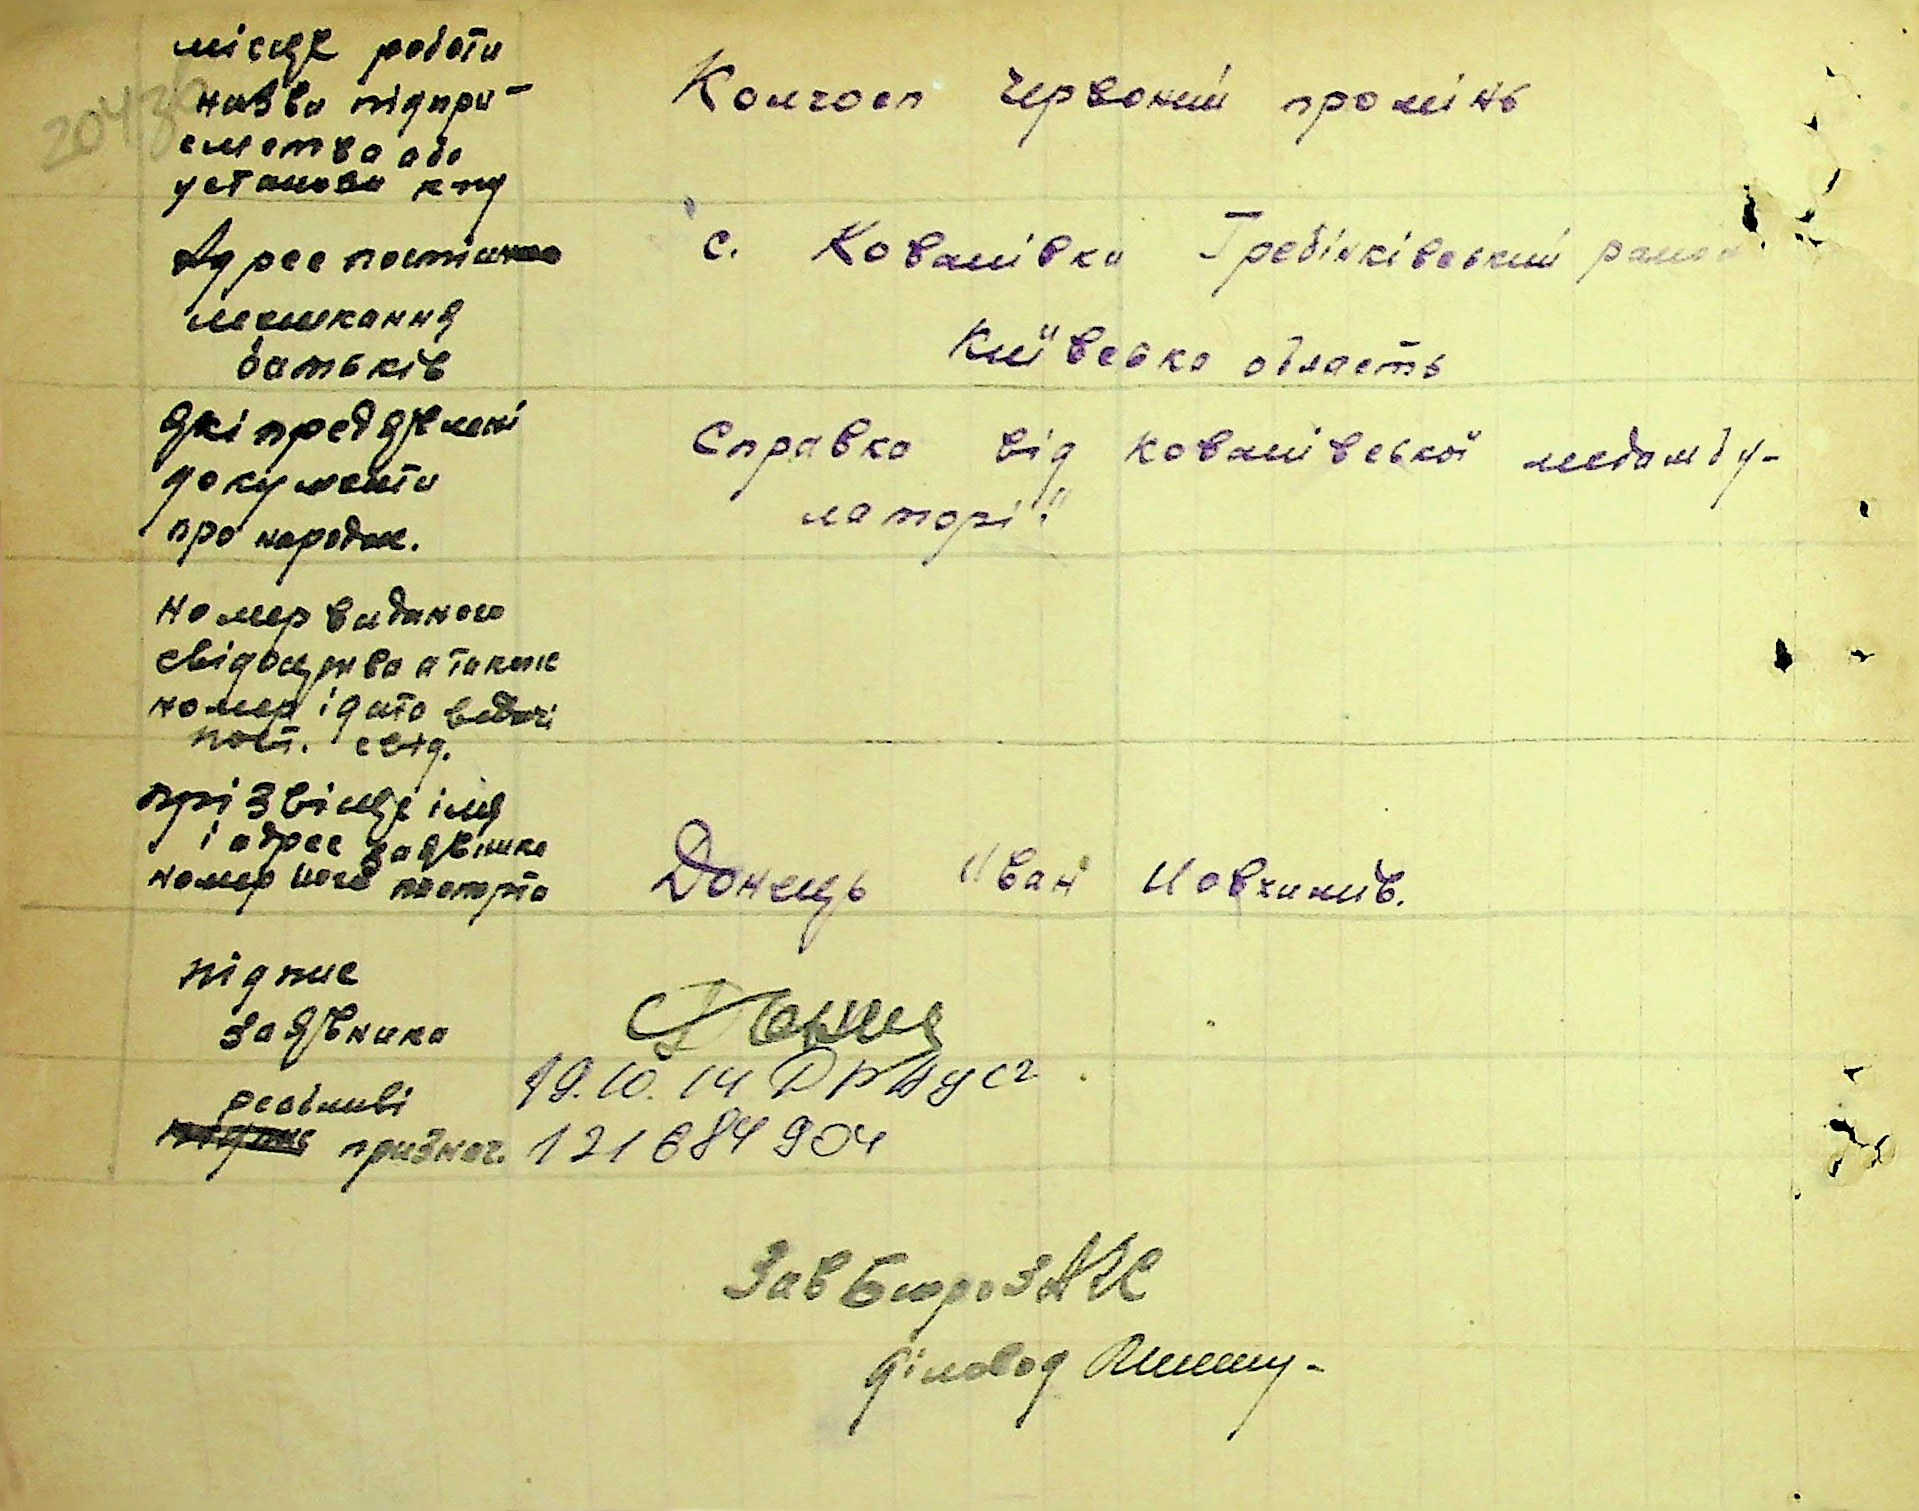 204зв
місце роботи
назва підпри-
ємства або
установи
Колгосп Червоний промінь
Адрес постійного
мешкання
батьків
с. Ковалівка Гребінківський район
Київська область
Які предявлені
документи
про народж.
Справка від Ковалівської медамбу-
латорії
Номер виданого
свідоцтва а також
номер і дата видачі
повт. свід.
прізвіще імя
і адрес заявника
номер його паспорта
Донець Іван Йовхимів.
підпис
заявника
Донец
19.10.14
признач. 121684904
Зав Бюро ЗАГС
діловод